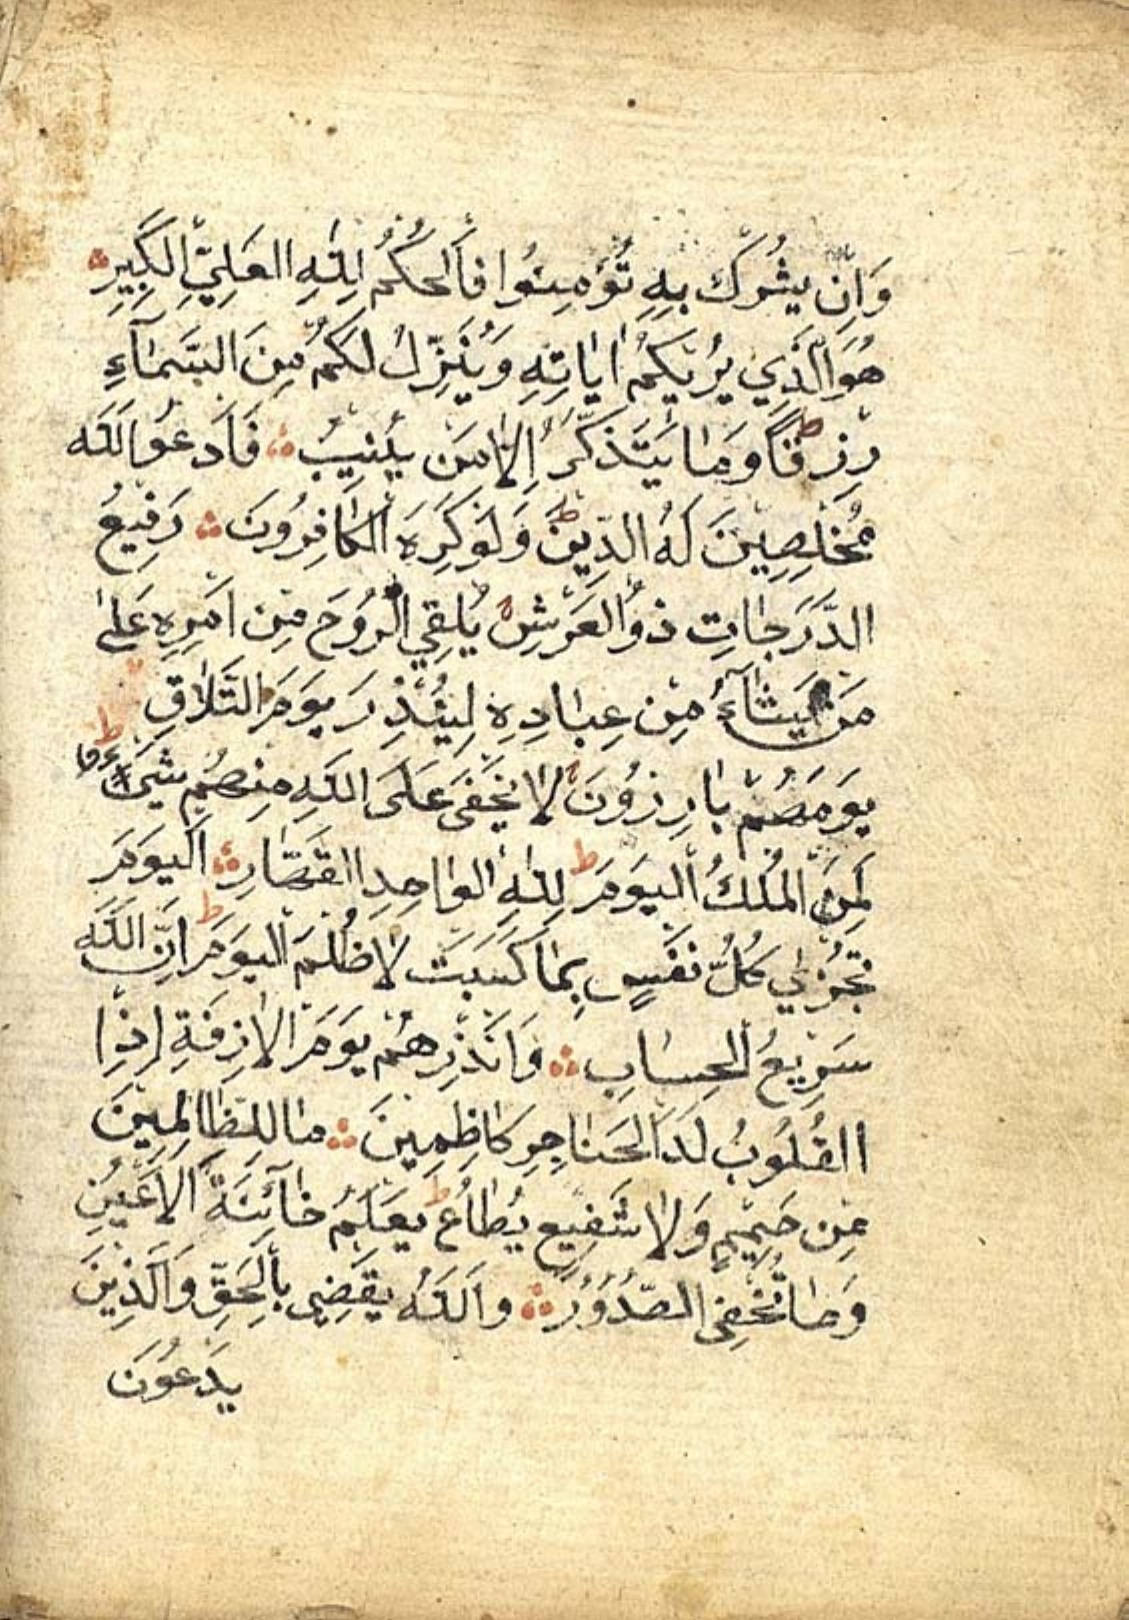 وَاِنْ يُشْرَكْ بِهٖ تُؤْمِنُوا فَالْحُكْمُ لِلّٰهِ الْعَلِيِّ الْكَبِيرِ
هُوَ الَّذِي يُرِيكُمْ اٰيَاتِهٖ وَيُنَزِّلُ لَكُمْ مِنَ السَّمَآءِ
رِزْقًا ط وَمَا يَتَذَكَّرُ اِلَّا مَنْ يُنِيبُ فَادْعُوا اللّٰهَ
مُخْلِصِينَ لَهُ الدِّينَ ط وَلَوْ كَرِهَ الْكَافِرُونَ رَفِيعُ
الدَّرَجَاتِ ذُو الْعَرْشِ يُلْقِي الرُّوحَ مِنْ اَمْرِهٖ عَلٰى
مَنْ يَشَآءُ مِنْ عِبَادِهٖ لِيُنْذِرَ يَوْمَ التَّلَاقِ
يَوْمَ هُمْ بَارِزُونَ لَا يَخْفٰى عَلَى اللّٰهِ مِنْهُمْ شَيْءٌ ط
لِمَنِ الْمُلْكُ الْيَوْمَ ط لِلّٰهِ الْوَاحِدِ الْقَهَّارِ اَلْيَوْمَ
تُجْزٰى كُلُّ نَفْسٍ بِمَا كَسَبَتْ لَا ظُلْمَ الْيَوْمَ ط اِنَّ اللّٰهَ
سَرِيعُ الْحِسَابِ وَاَنْذِرْهُمْ يَوْمَ الْاٰزِفَةِ اِذِا
الْقُلُوبُ لَدَا الْحَنَاجِرِ كَاظِمِينَ مَا لِلظَّالِمِينَ
مِنْ حَمِيمٍ وَلَا شَفِيعٍ يُطَاعُ ط يَعْلَمُ خَآئِنَةَ الْاَعْيُنِ
وَمَا تُخْفِى الصُّدُوُرُ وَاللّٰهُ يَقْضِى بِالْحَقِّ وَالَّذِينَ
يَدْعُونَ